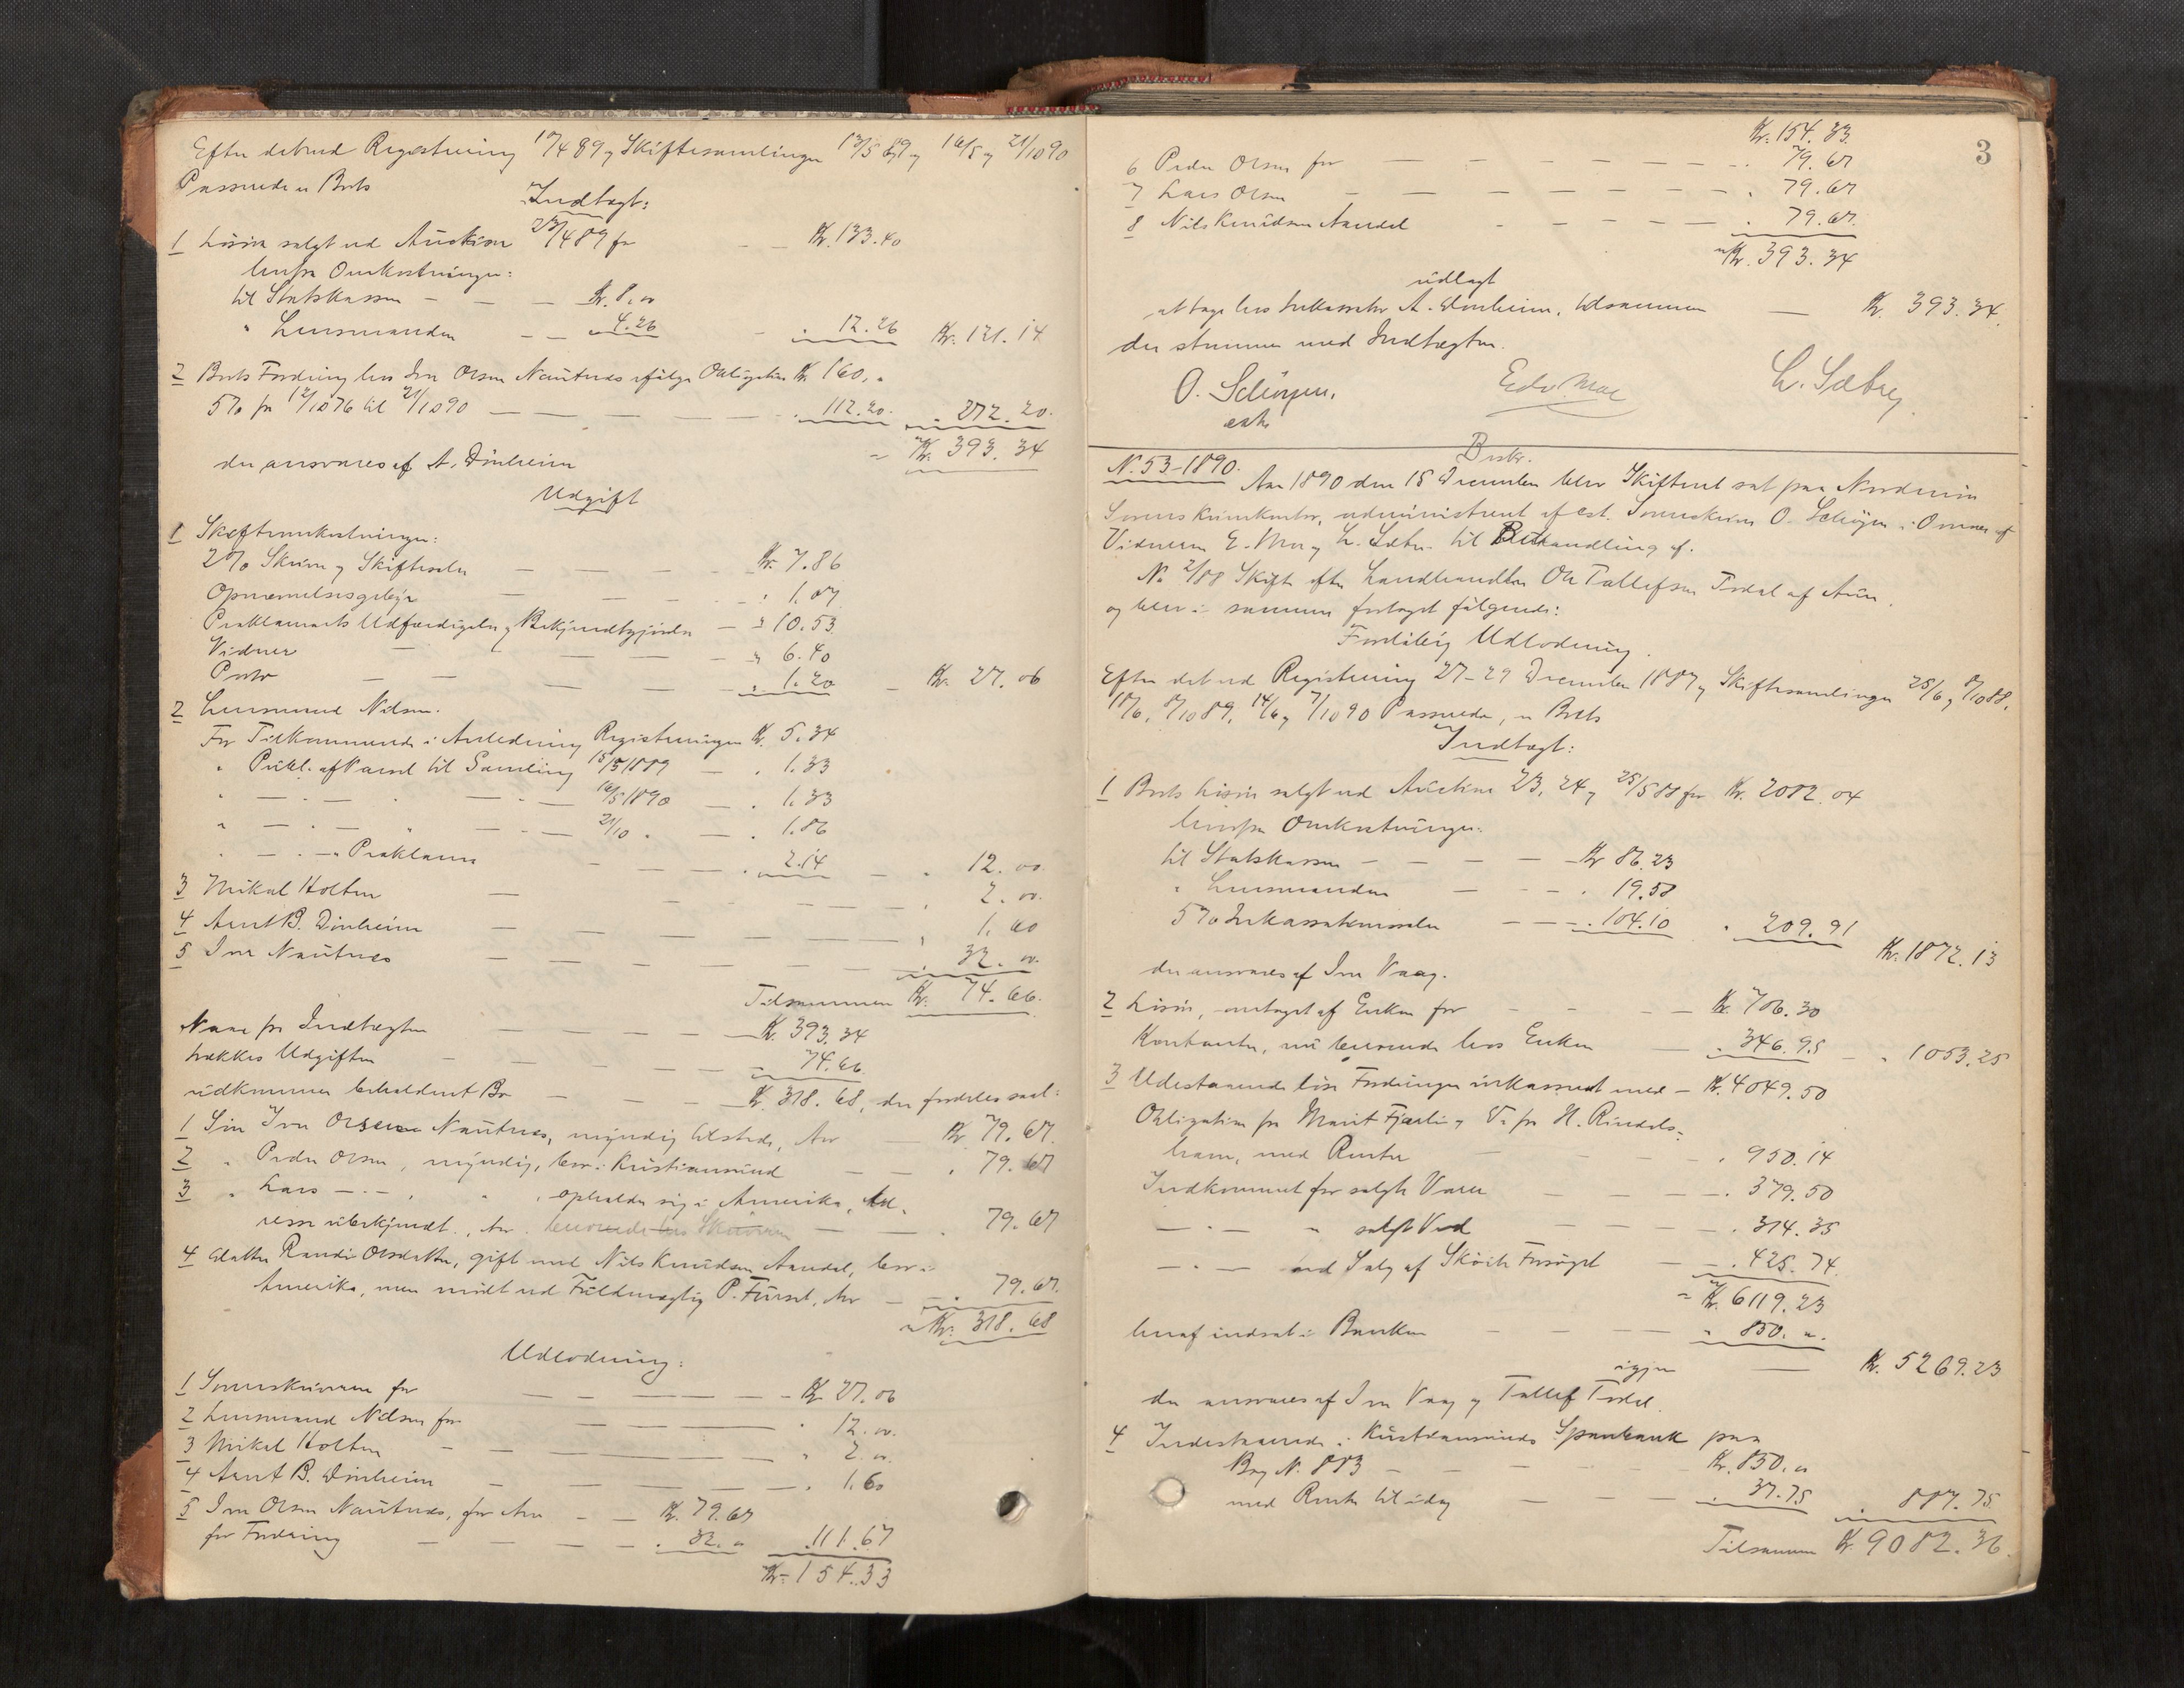 Efter det ved Registrering 17/4 89 og Skiftesamlinger 13/5 89 og 16/5 og 21/10 90
Passerede er Boets
Indtægt:
1 Løsøre solgt ved Auktion 23/4 89 for Kr. 133.40
herfra Omkostninger:
til Statskassen Kr. 8.00
" Lensmanden 4.26 12.26 Kr. 121.14
2 Boets Fordring hos Iver Olsen Nautnes ifølge Obligation Kr. 160.
5% fra 12/10 76 til 21/10 90 112.20 272.20
Kr. 393.34
der ansvares af A. Dönheim
Udgift
1 Skifteomkostninger:
2% Skriver og Skiftesalær Kr. 7.86
Opnævnelsesgebyr 1.07
Proklamaets Udfærdigelse og Bekjendtgjørelse 10.53
Vidner 6.40
Porto 1.20 Kr. 27.06
2 Lensmand Nilsen.
For Tilkommende i Anledning Registreringen Kr. 5.34
" Publ. af Varsel til Samling 13/5 1889 1.33
" 16/5 1890 1.33
" 21/10 " 1.86
" Proklama 2.14 12.00
3 Mikal Holten 2.00
4 Arnt B. Dönheim 1.60
5 Iver Nautnes 32.00
Tilsammen Kr. 74.66
Naar fra Indtægten Kr. 393.34
trækkes Udgiften 74.66
udkommer beholdent Bo Kr. 318.68, der fordeles saal:
1 Søn Iver Olsen Nautnes, myndig tilstede, Arv Kr. 79.67
2 " Peder Olsen, myndig, bor i Kristiansund 79.67
3 " Lars — " — , " , opholder sig i Amerika, Ad-
resse ubekjendt, Arv beroende hos Skriveren 79.67
4 Datter Randi Olsdatter, gift med Nils Knudsen Aandal, bor i
Amerika, men mødt ved Fuldmægtig P. Fürset, Arv 79.67
Kr. 318.68
Udlodning:
1 Sorenskriveren for Kr. 27.06
2 Lensmand Nilsen for 12.00
3 Mikal Holten 2.00
4 Arnt B. Dönheim 1.60
5 Iver Olsen Nautnes, for Arv Kr. 79.67
for Fordring 32.00 111.67
Kr. 154.33
3
Kr. 154.33
6 Peder Olsen for 79.67
7 Lars Olsen 79.67
8 Nils Knudsen Aandal 79.67
Kr. 393.34
udlagt
at tage hos Inkassator A. Dönheim, tilsammen Kr. 393.34
der stemmer med Indtægten.
O. Schøyen.
cst.
Edv. Moe
L. Sæbøy
N. 53–1890.
Aar 1890 den 18 December blev Skifteret sat paa Nordmør
Sorenskriverkontor, administreret af cst. Sorenskriver O. Schøyen i Overvær af
Vidnerne E. Moe og L. Sæbø. til Behandling af.
No 2/88 Skifte efter Landhandler Ole Tallefsen Todal af Aure.
og blev i samme foretaget følgende:
Foreløbig Udlodning.
Efter det ved Registrering 27–29 December 1887 og Skiftesamlinger 25/6 og 8/10 88,
18/6, 8/10 89, 14/6 og 7/10 90 Passerede, er Boets
Indtægt:
1 Boets Løsøre solgt ved Auktion 23, 24 og 25/5 88 for Kr. 2082.04
herfra Omkostninger:
til Statskassen Kr. 86.23
" Lensmanden 19.58
5% Inkassationssalær 104.10 209.91
Kr. 1872.13
der ansvares af Iver Vaag.
2 Løsøre, overtaget af Enken for Kr. 706.30
Kontanter, nu beroende hos Enken 346.95 1053.25
3 Udestaaende løse Fordringer inkasseret med Kr. 4049.50
Obligation fra Marit Fjærli og fra H. Rindals-
ham, med Renter 950.14
Indkommet for solgte Varer 379.50
— " — " solgt Ved 314.35
— " — ved Salg af Skøite Forsøget 425.74
Kr. 6119.23
heraf indsat i Banken 850.
igjen Kr. 5269.23
der ansvares af Iver Vaag og Tallef Todal.
4 Indestaaende i Kristiansunds Sparebank paa
Bog N. 883 Kr. 850.
med Renter til idag 37.75 887.75
Tilsammen Kr. 9082.36